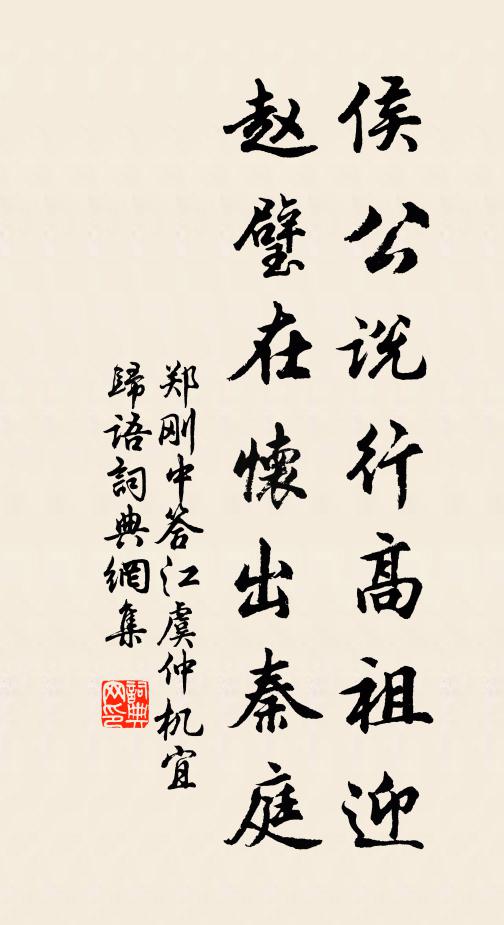 侯公说行高祖迎
赵璧在懷出秦庭
郑刚中答江虞仲机宜
歸语詞典網集
詞典网印